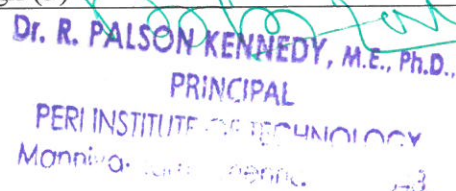 Dr. R. PALSON KENNEDY, M.E., Ph.D.,
PRINCIPAL
PERI INSTITUTE OF TECHNOLOGY